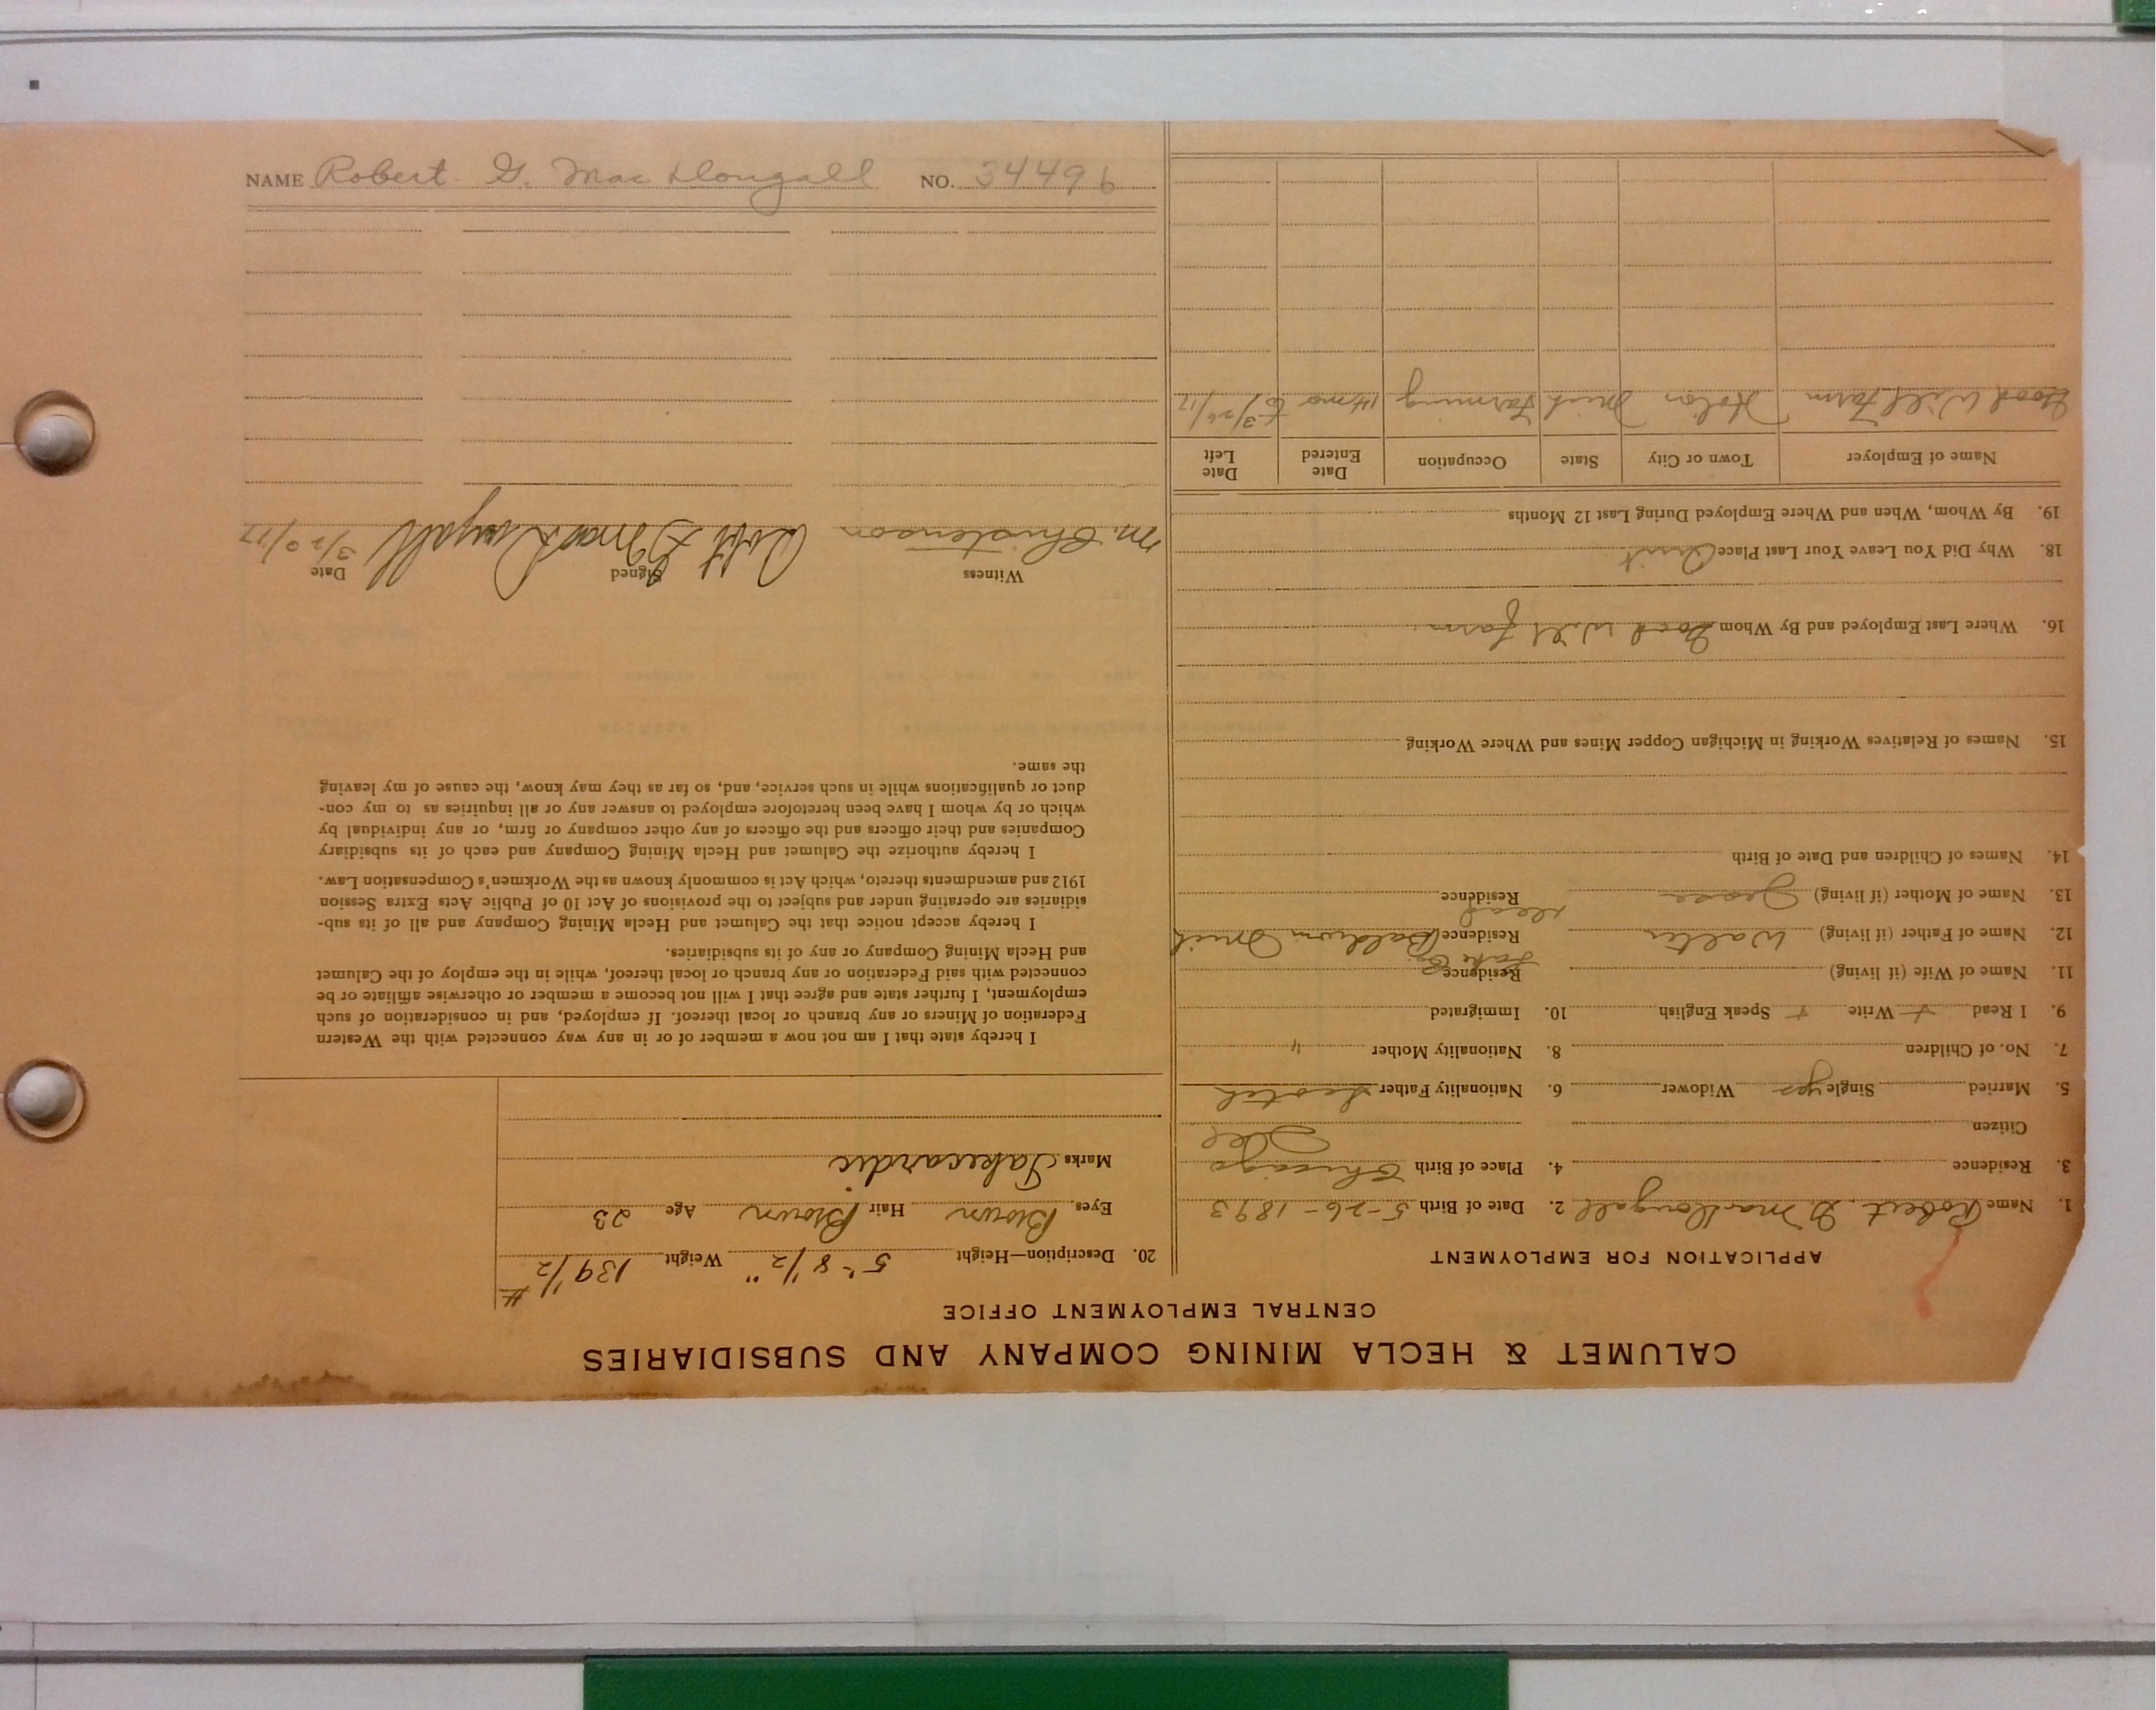 CALUMET & HECLA MINING COMPANY AND SUBSIDIARIES
CENTRAL EMPLOYMENT OFFICE
APPLICATION FOR EMPLOYMENT
1. Name Robert G. MacDougall 2. Date of Birth 5-26-1893
3. Residence 4. Place of Birth Chicago
Citizen Ill
5. Married Single yes Widower 6. Nationality Father Scotch
7. No. of Children 8. Nationality Mother "
9. I Read + Write + Speak English 10. Immigrated
11. Name of Wife (if living) Residence
12. Name of Father (if living) Walter Residence Lake Co. Baldwin Mich
13. Name of Mother (if living) Residence dead
14. Names of Children and Date of Birth
15. Names of Relatives Working in Michigan Copper Mines and Where Working
16. Where Last Employed and By Whom Good Will farm
18. Why Did You Leave Your Last Place Quit
19. By Whom, When and Where Employed During Last 12 Months
Name of Employer Town or City State Occupation Date Entered Date Left
Good Will Farm Mich Farming 14 mo to 3/26/17
20. Description—Height 5'-8 1/2" Weight 139 1/2 #
Eyes Brown Hair Brown Age 23
Marks
I hereby state that I am not now a member of or in any way connected with the Western
Federation of Miners or any branch or local thereof. If employed, and in consideration of such
employment, I further state and agree that I will not become a member or otherwise affiliate or be
connected with said Federation or any branch or local thereof, while in the employ of the Calumet
and Hecla Mining Company or any of its subsidiaries.
I hereby accept notice that the Calumet and Hecla Mining Company and all of its sub-
sidiaries are operating under and subject to the provisions of Act 10 of Public Acts Extra Session
1912 and amendments thereto, which Act is commonly known as the Workmen's Compensation Law.
I hereby authorize the Calumet and Hecla Mining Company and each of its subsidiary
Companies and their officers and the officers of any other company or firm, or any individual by
which or by whom I have been heretofore employed to answer any or all inquiries as to my con-
duct or qualifications while in such service, and, so far as they may know, the cause of my leaving
the same.
Witness Signed Date
M. Christenson Robt G MacDougall
NAME Robert G. MacDougall NO. 34496